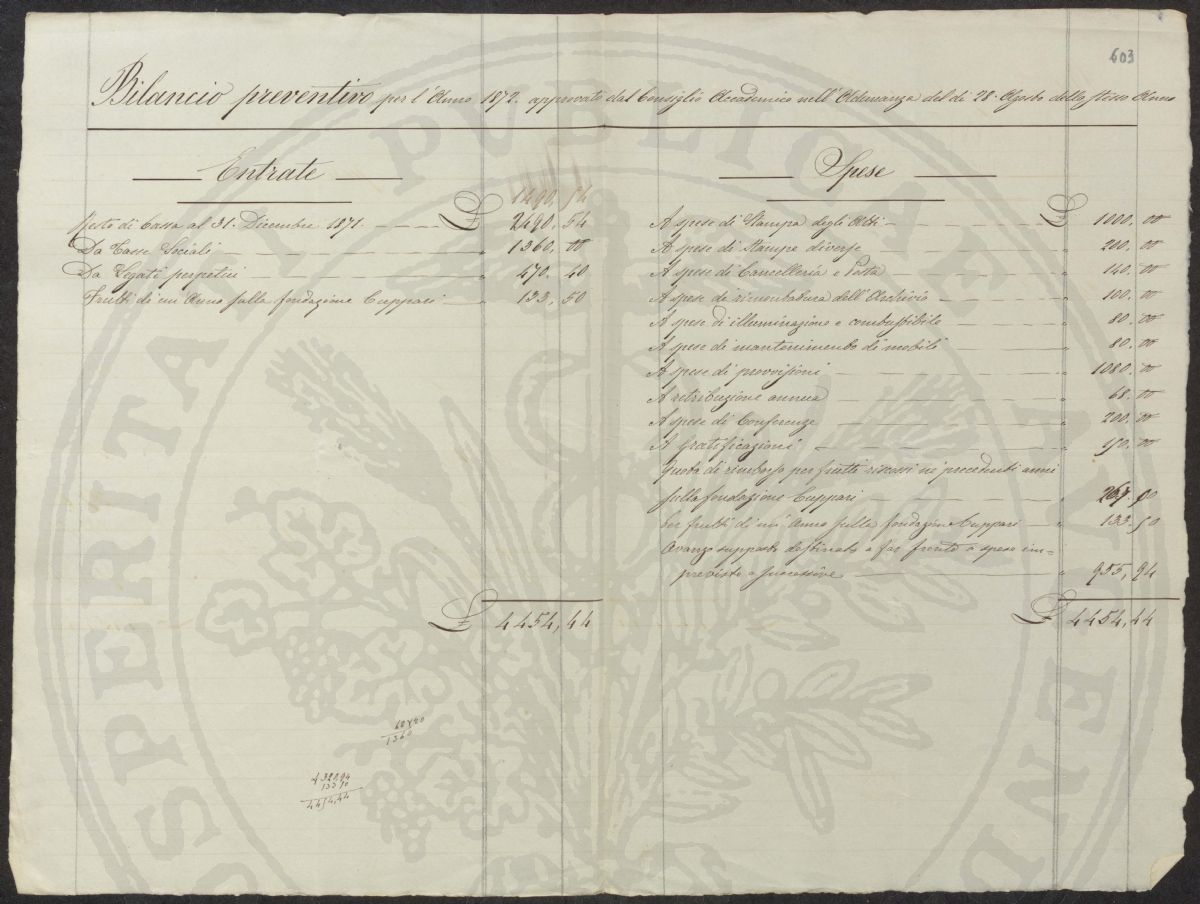 603
Bilancio preventivo per l'Anno 1872. approvato dal Consiglio Accademico nell'Adunanza del dì 28. Agosto dello stesso Anno
Entrate
1490,54
Resto di Cassa al 31. Dicembre 1871. £ 2490,54
Da Tasse Sociali " 1360,00
Da Legati perpetui " 470,40
Frutti di un'Anno sulla fondazione Cuppari " 133,50
£ 4454,44
68×20
1360
4320,94
133 50
4454,44
Spese
A spese di Stampa degli Atti £ 1000,00
A spese di Stampe diverse " 200,00
A spese di Cancelleria e Posta " 140,00
A spese di rimontatura dell'Archivio " 100,00
A spese di illuminazione e combustibile " 80,00
A spese di mantenimento di mobili " 80,00
A spese di provvisioni " 1080,00
A retribuzione annua " 68,00
A spese di Conferenze " 200,00
A gratificazioni " 150,00
Quota di rimborso per frutti riscossi ni precedenti anni
sulla fondazione Cuppari " 267,00
Per frutti di un'Anno sulla fondazione Cuppari " 133,50
Avanzo supposto destinato a far fronte a spese im=
previste e successive " 955,94
£ 4454,44
PROSPERITATI PUBLICAE AUGENDAE